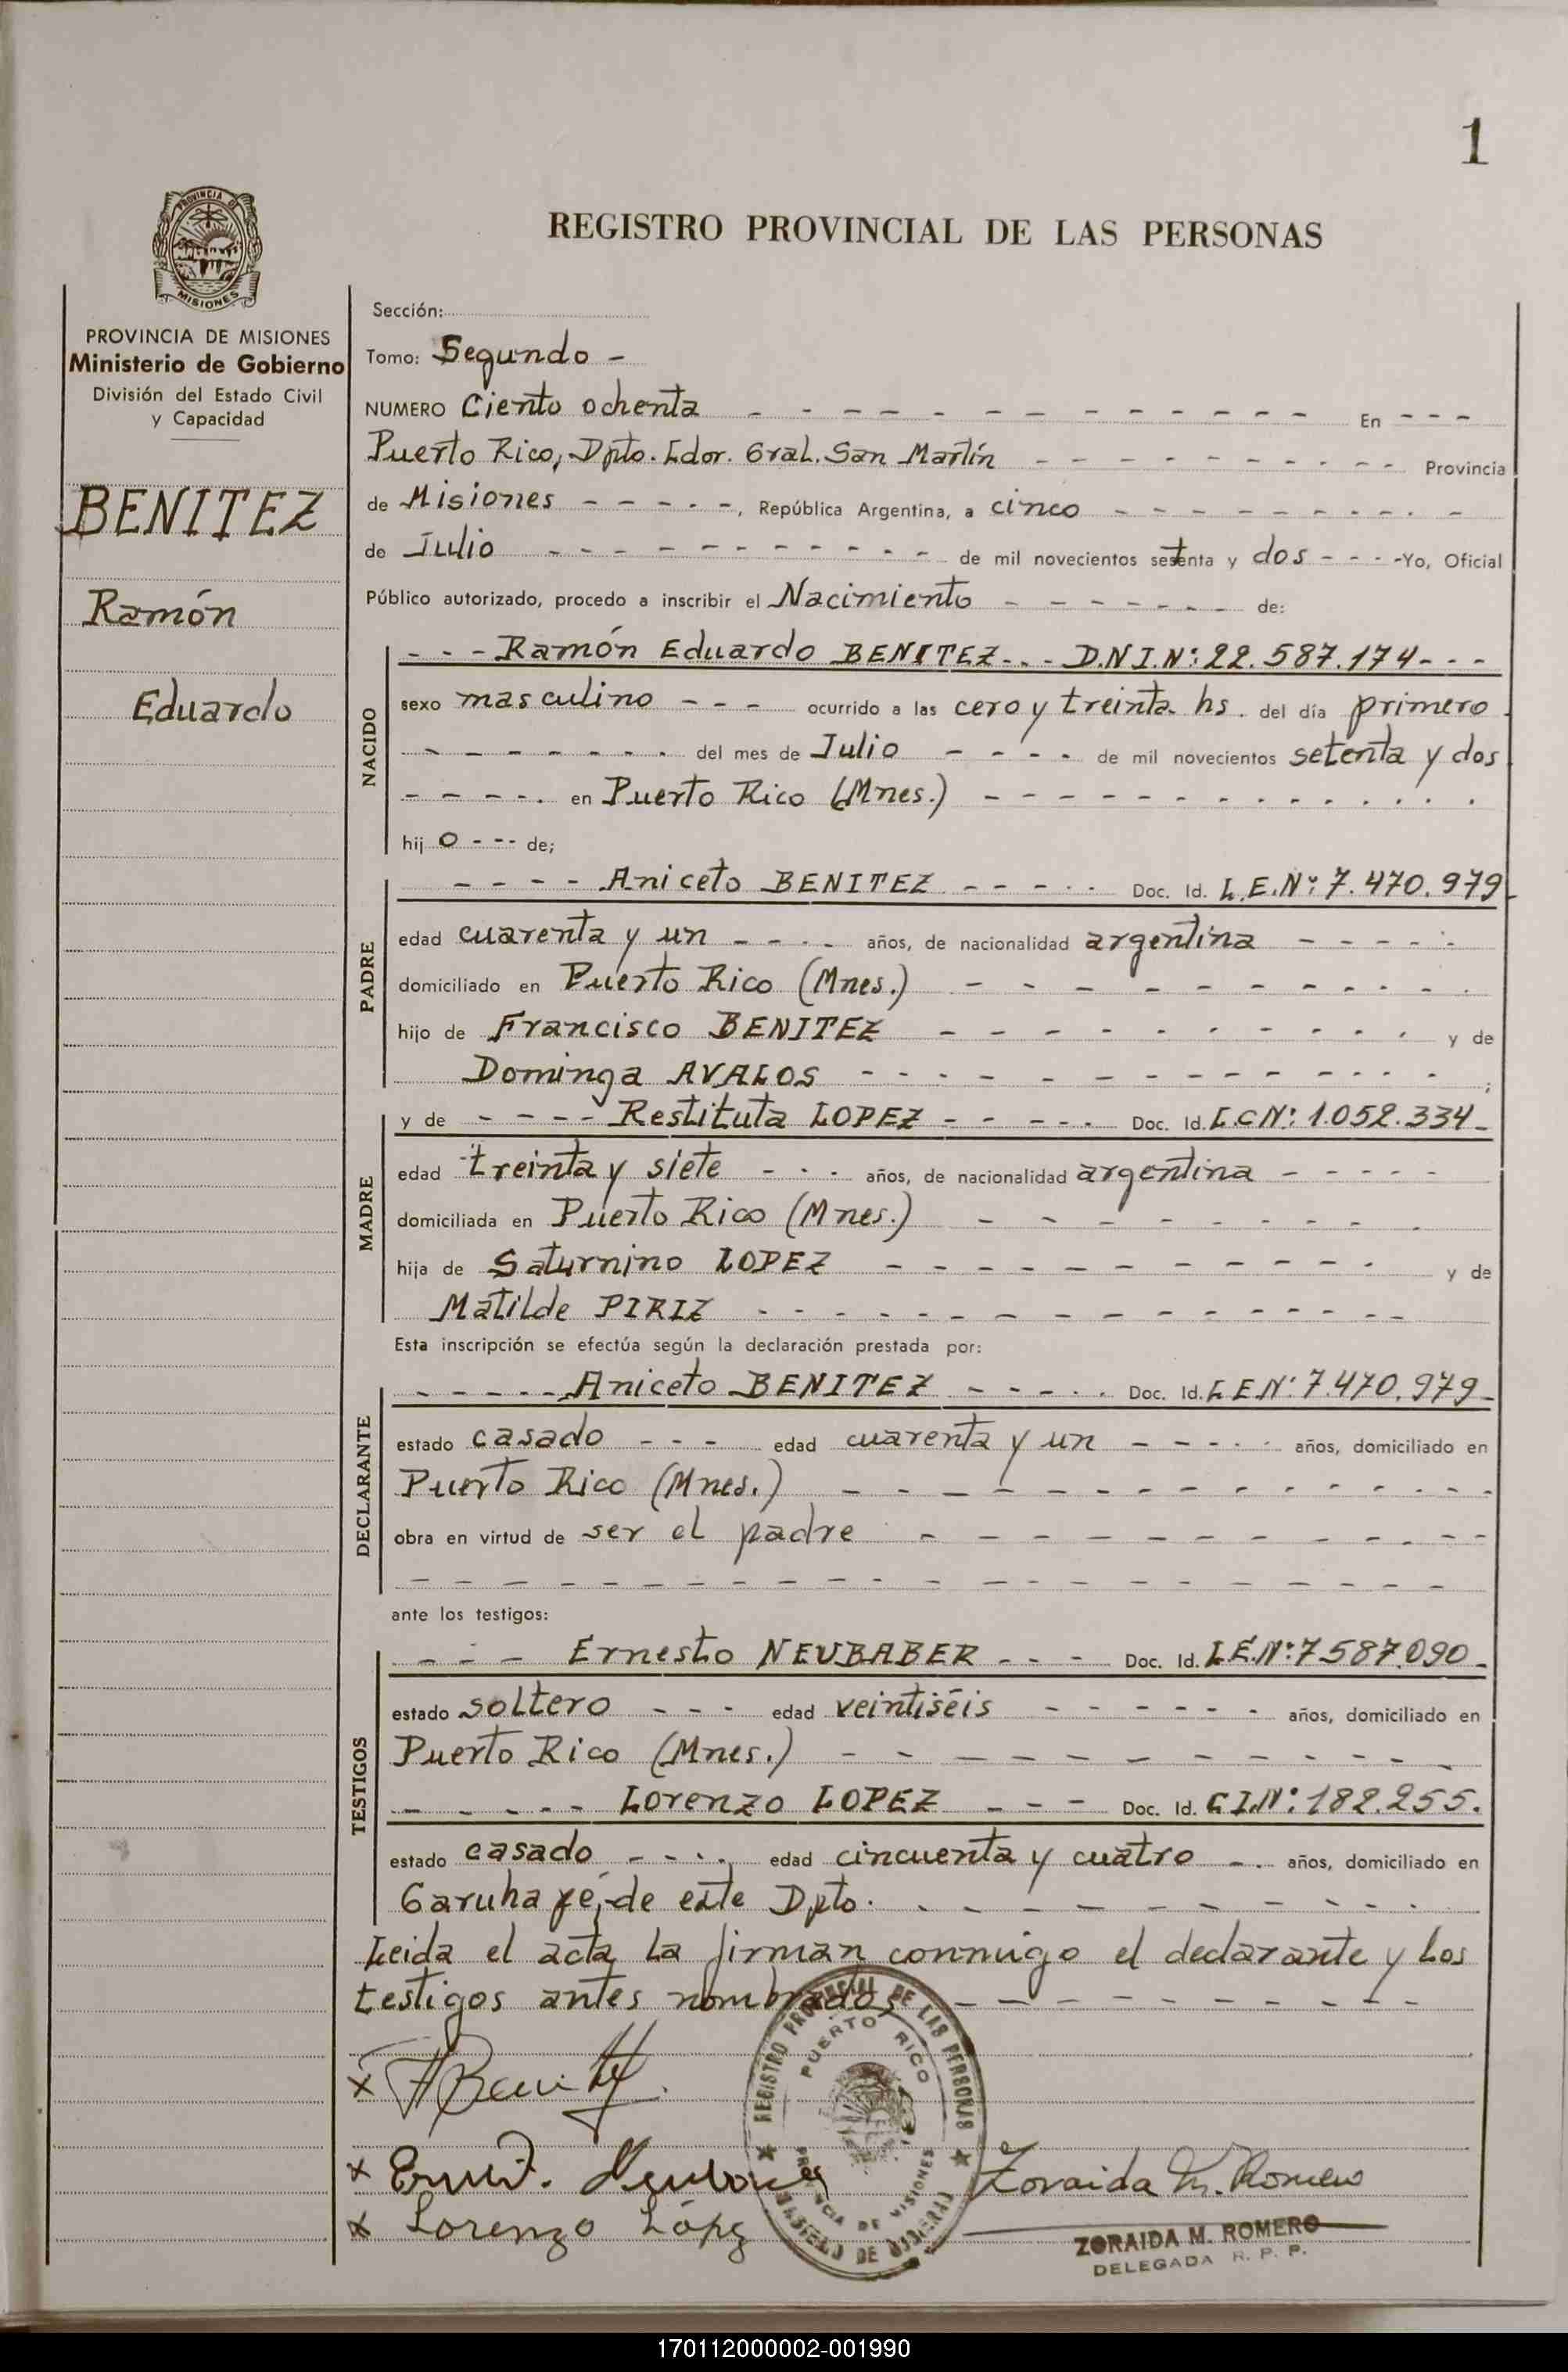 1
PROVINCIA DE
MISIONES
REGISTRO PROVINCIAL DE LAS PERSONAS
PROVINCIA DE MISIONES
Ministerio de Gobierno
División del Estado Civil
y Capacidad
BENITEZ
Ramón
Eduardo
Sección:
Tomo: Segundo -
NUMERO Ciento ochenta - - - - - - - - - - - - - En - - -
Puerto Rico, Dpto. Ldor. Gral. San Martín - - - - - - - - - - Provincia
de Misiones - - - - -, República Argentina, a cinco - - - - - - - - - -
de Julio - - - - - - - - - - - - de mil novecientos setenta y dos - - - - Yo, Oficial
Público autorizado, procedo a inscribir el Nacimiento - - - - - - - - de:
NACIDO
- - - Ramón Eduardo BENITEZ - - - D.N.I.Nº: 22.587.174 - - -
sexo masculino - - - - ocurrido a las cero y treinta hs. del día primero
- - - - - - - - del mes de Julio - - - - - de mil novecientos setenta y dos
- - - - - en Puerto Rico (Mnes.) - - - - - - - - - - - - - -
hij o - - - de;
PADRE
- - - - Aniceto BENITEZ - - - - - Doc. Id. L.E.Nº: 7.470.979-
edad cuarenta y un - - - - años, de nacionalidad argentina - - - - - -
domiciliado en Puerto Rico (Mnes.) - - - - - - - - - - - -
hijo de Francisco BENITEZ - - - - - - - - - - - y de
Dominga AVALOS - - - - - - - - - - - - - - ;
MADRE
y de - - - - Restituta LOPEZ - - - - - Doc. Id. L.C.Nº: 1.052.334-
edad treinta y siete - - - años, de nacionalidad argentina - - - - -
domiciliada en Puerto Rico (Mnes.) - - - - - - - - - -
hija de Saturnino LOPEZ - - - - - - - - - - - y de
Matilde PIRIZ - - - - - - - - - - - - - - - - -
Esta inscripción se efectúa según la declaración prestada por:
DECLARANTE
- - - - - Aniceto BENITEZ - - - - - Doc. Id. L.E.Nº: 7.470.979-
estado casado - - - - edad cuarenta y un - - - - - años, domiciliado en
Puerto Rico (Mnes.) - - - - - - - - - - - - - - - -
obra en virtud de ser el padre - - - - - - - - - - - -
- - - - - - - - - - - - - - - - - - - - - - -
ante los testigos:
TESTIGOS
- - - Ernesto NEUBABER - - - Doc. Id. L.E.Nº: 7587.090-
estado soltero - - - edad veintiséis - - - - - - años, domiciliado en
Puerto Rico (Mnes.) - - - - - - - - - - - - -
- - - - - Lorenzo LOPEZ - - - Doc. Id. C.I.Nº: 182.255.
estado casado - - - - edad cincuenta y cuatro - - años, domiciliado en
Garuhapé, de este Dpto. - - - - - - - - - - -
Leida el acta, la firman conmigo el declarante y los
testigos antes nombrados - - - - - - - - - - -
REGISTRO PROVINCIAL DE LAS PERSONAS
PUERTO RICO
PROVINCIA DE MISIONES
x
x
x Lorenzo López
Zoraida M. Romero
ZORAIDA M. ROMERO
DELEGADA R. P. P.
170112000002-001990